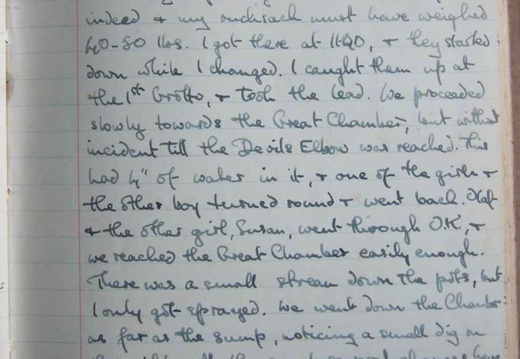 indeed & my rucksack must have weighed
40-50 lbs. I got there at 1140, & they started
down while I changed. I caught them up at
the 1st Grotto, & took the lead. We proceeded
slowly towards the Great Chamber, but without
incident till the Devils Elbow was reached. This
had 4" of water in it, & one of the girls &
the other boy turned round & went back.
& the other girl, Susan, went through O.K., &
we reached the Great Chamber easily enough.
There was a small stream down the pots, but
I only got sprayed. We went down the Chamber
as far as the sump, noticing a small dig on